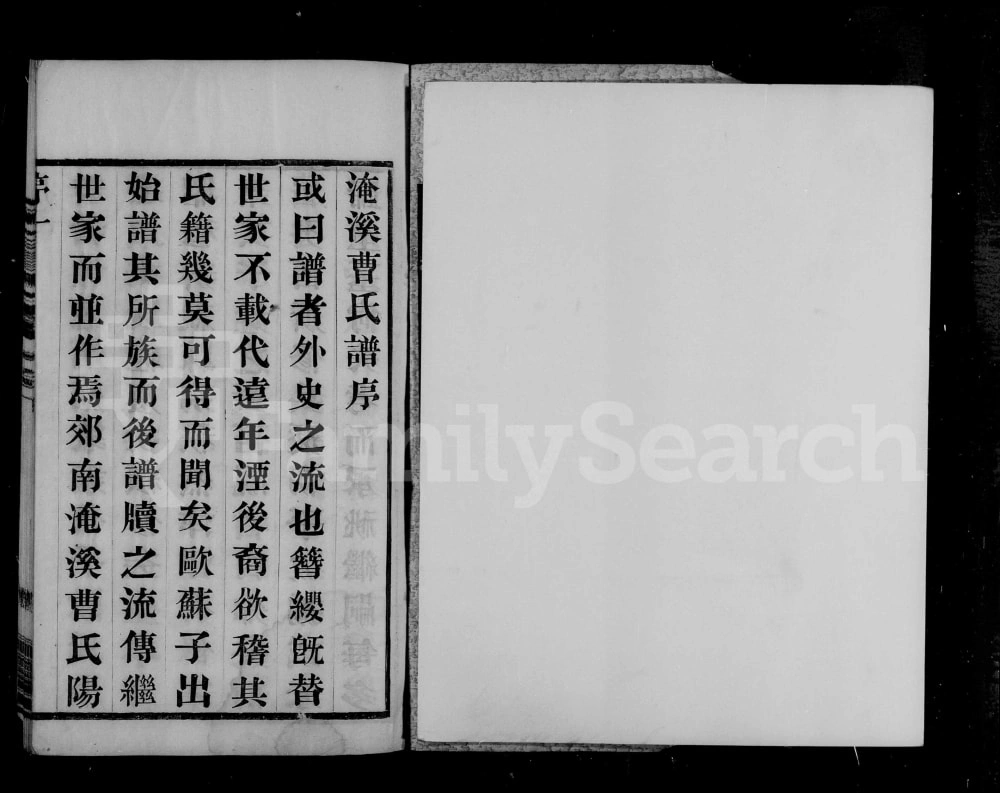 淹溪曹氏譜序
或曰譜者外史之流也簪纓旣替
世家不載代遠年湮後裔欲稽其
氏籍幾莫可得而聞矣歐蘇子出
始譜其所族而後譜牘之流傳繼
世家而並作焉郊南淹溪曹氏陽
序一
FamilySearch